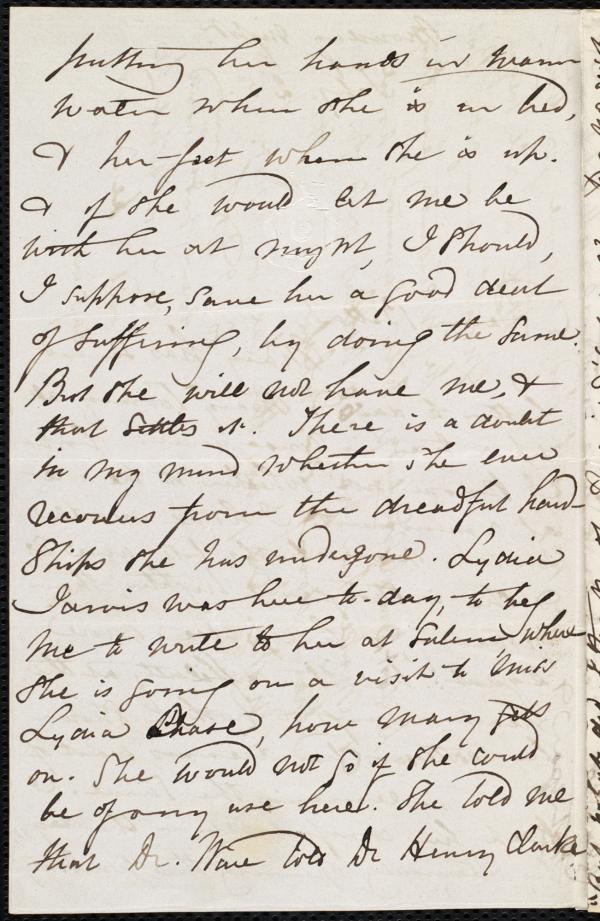 putting her hands in warm
water when she is in bed,
& her feet when she is up.
& if she would let me be
with her at night, I should,
I suppose, save her a good deal
of suffering, by doing the same.
But she will not have me, &
that settles it. There is a doubt
in my mind whether she ever
recovers from the dreadful hard-
ships she has undergone. Lydia
Jarvis was here to-day, to beg
me to write to her at Salem where
she is going on a visit to Miss
Lydia Chase, how Mary gets
on. She would not go if she could
be of any use here. She told me
that Dr. Ware told Dr Henry Clarke